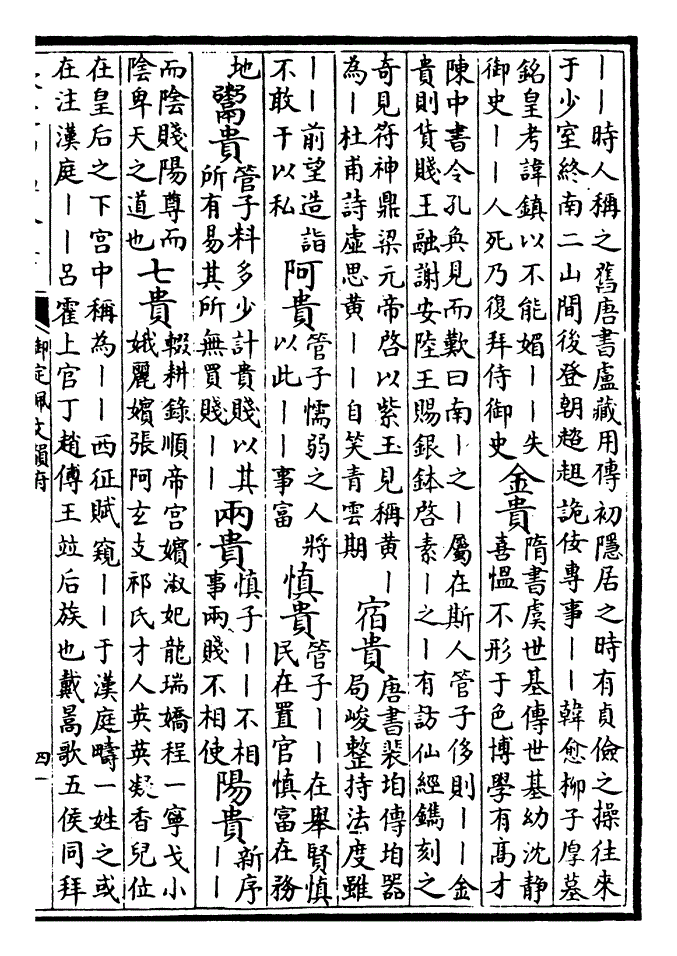 丨丨時人稱之舊唐書盧藏用傳初隱居之時有貞儉之操往來
于少室終南二山間後登朝趦趄詭佞專事丨丨韓愈柳子厚墓
銘皇考諱鎮以不能媚丨丨失
御史丨丨人死乃復拜侍御史
金貴
隋書虞世基傳世基幼沈静
喜愠不形于色博學有髙才
陳中書令孔奐見而歎曰南丨之丨屬在斯人管子侈則丨丨金
貴則貨賤王融謝安陸王賜銀鉢啓素丨之丨有訪仙經鐫刻之
奇見符神鼎梁元帝啓以紫玉見稱黄丨
為丨杜甫詩虚思黄丨丨自笑青雲期
宿貴
唐書裴垍傳垍器
局峻整持法度雖
丨丨前望造詣
不敢干以私
阿貴
管子懦弱之人將
以此丨丨事富
慎貴
管子丨丨在舉賢慎
民在置官慎富在務
地
鬻貴
管子料多少計貴賤以其
所有易其所無買賤丨丨
兩貴
慎子丨丨不相
事兩賤不相使
陽貴
新序
丨丨
而陰賤陽尊而
陰卑天之道也
七貴
輟耕錄順帝宫嬪淑妃龍瑞嬌程一寧戈小
娥麗嬪張阿玄支祁氏才人英英凝香兒位
在皇后之下宫中稱為丨丨西征賦窺丨丨于漢庭疇一姓之或
在注漢庭丨丨吕霍上官丁趙傅王竝后族也戴暠歌五侯同拜
御定佩文韻府
四一